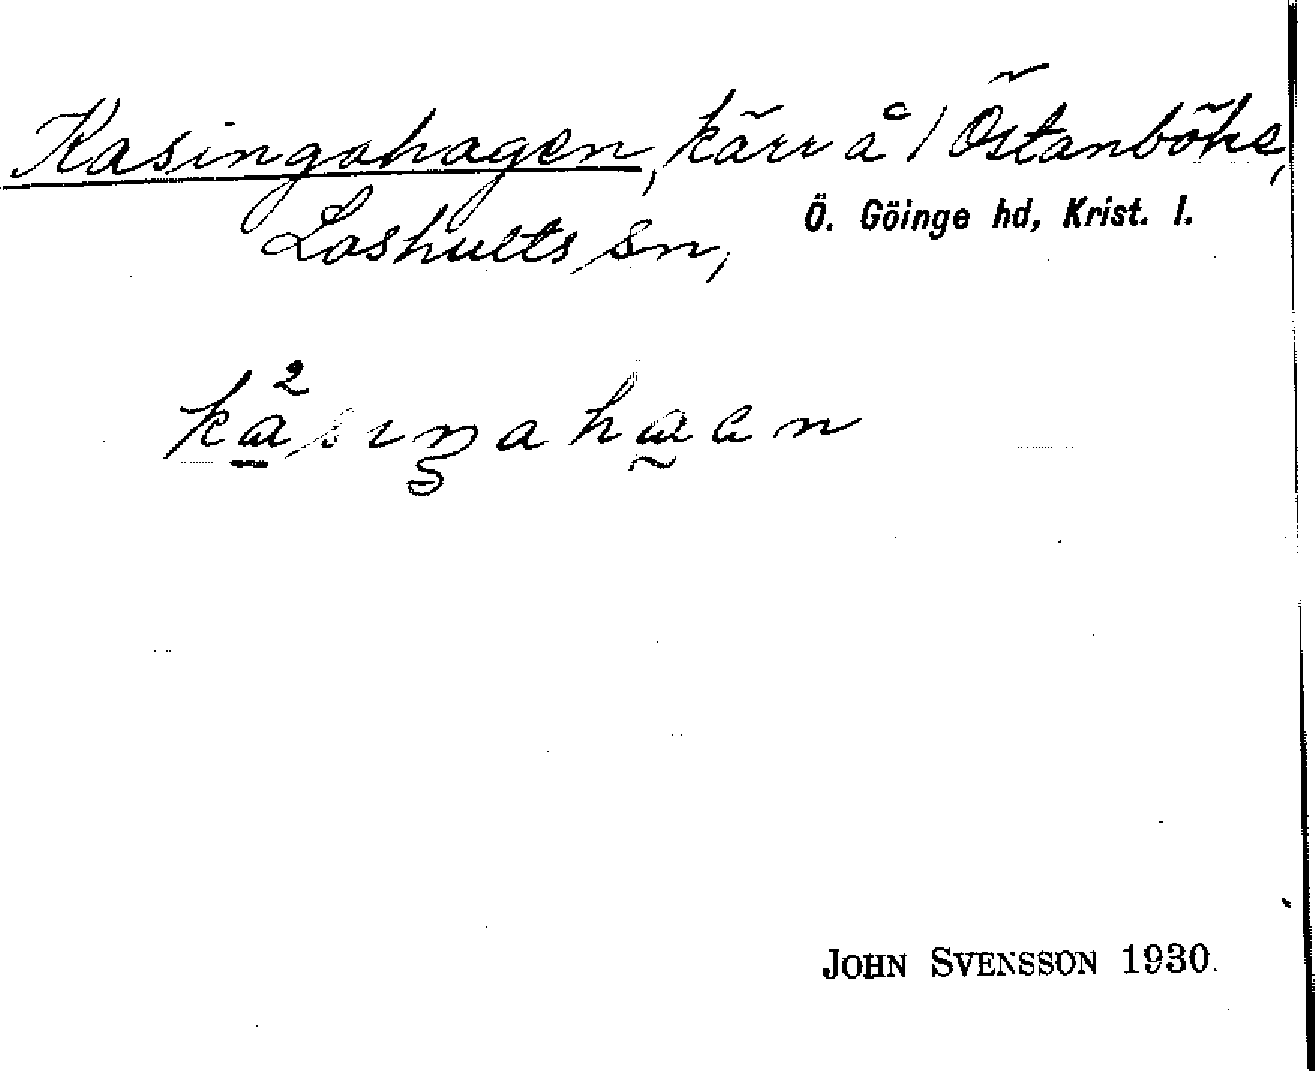 Kasingahagen, kärr å / Östanböke,
Loshults sn, Ö. Göinge hd, Krist. l.
JOHN SVENSSON 1930.